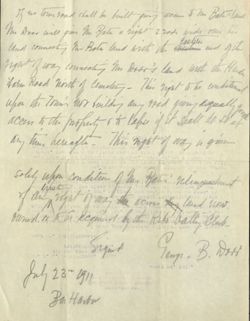 If no town road shall be built giving access to Mr Bate's land
Mr Dorr will give Mr Bate a right 2 rods wide over his
land connecting Mr Bate's land with the and of the
right of way connecting Mr Dorr's land with the
Road north of cemetery. This right to be conditioned
upon the Town's not building any road giving equally good
access to the property & to lapse if it shall do so at
any time hereafter. This right of way is given
solely upon condition of Mr relinquishment
of any right of way across land now
owned or to be acquired by the
Signed
George B. Dorr
July 23rd 1911
Bar Harbor